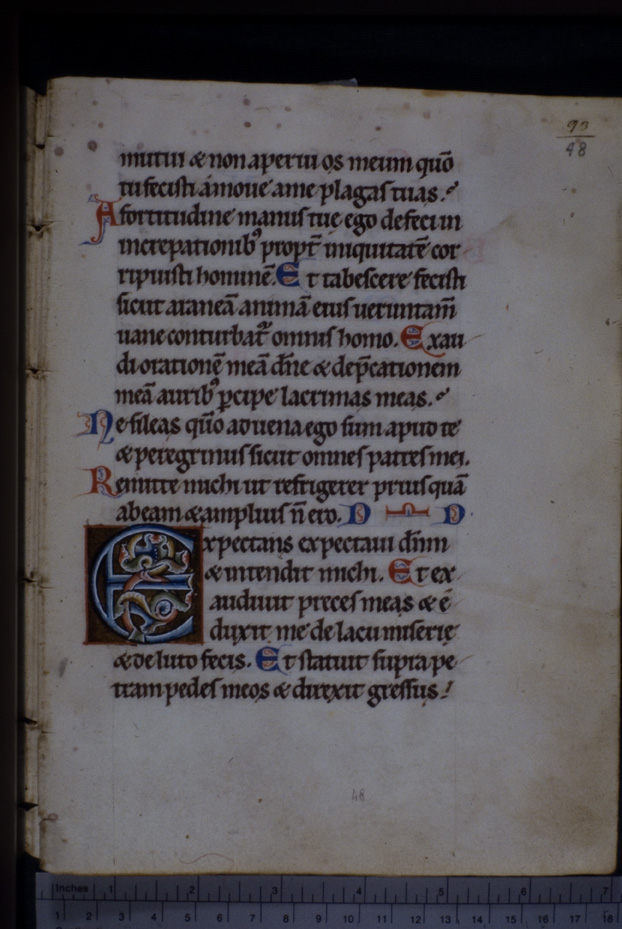 93
48
mutui & non aperui os meum qūo
tu fecisti amoue a me plagas tuas.
A fortitudine manus tue ego defeci in
increpationibꝰ propt̄ iniquitatē cor
ripuisti hominē. Et tabescere fecisti
sicut araneā animā eius ueruntam̄
uane conturbat᷑ omnis homo. Exau
di orationē meā dn̄e & dep̄cationem
meā auribꝰ ꝑcipe lacrimas meas.
Ne sileas qūo aduena ego sum apud te
& peregrinus sicut omnes patres mei.
Remitte michi ut refrigerer priusquā
abeam & amplius n̄ ero.
Expectans expectaui dn̄m
& intendit michi. Et ex
audiuit preces meas & ē
duxit me de lacu miserie
& de luto fecis. Et statuit supra pe
tram pedes meos & direxit gressus
48
Inches 1 2 3 4 5 6 7
1 2 3 4 5 6 7 8 9 10 11 12 13 14 15 16 17 18